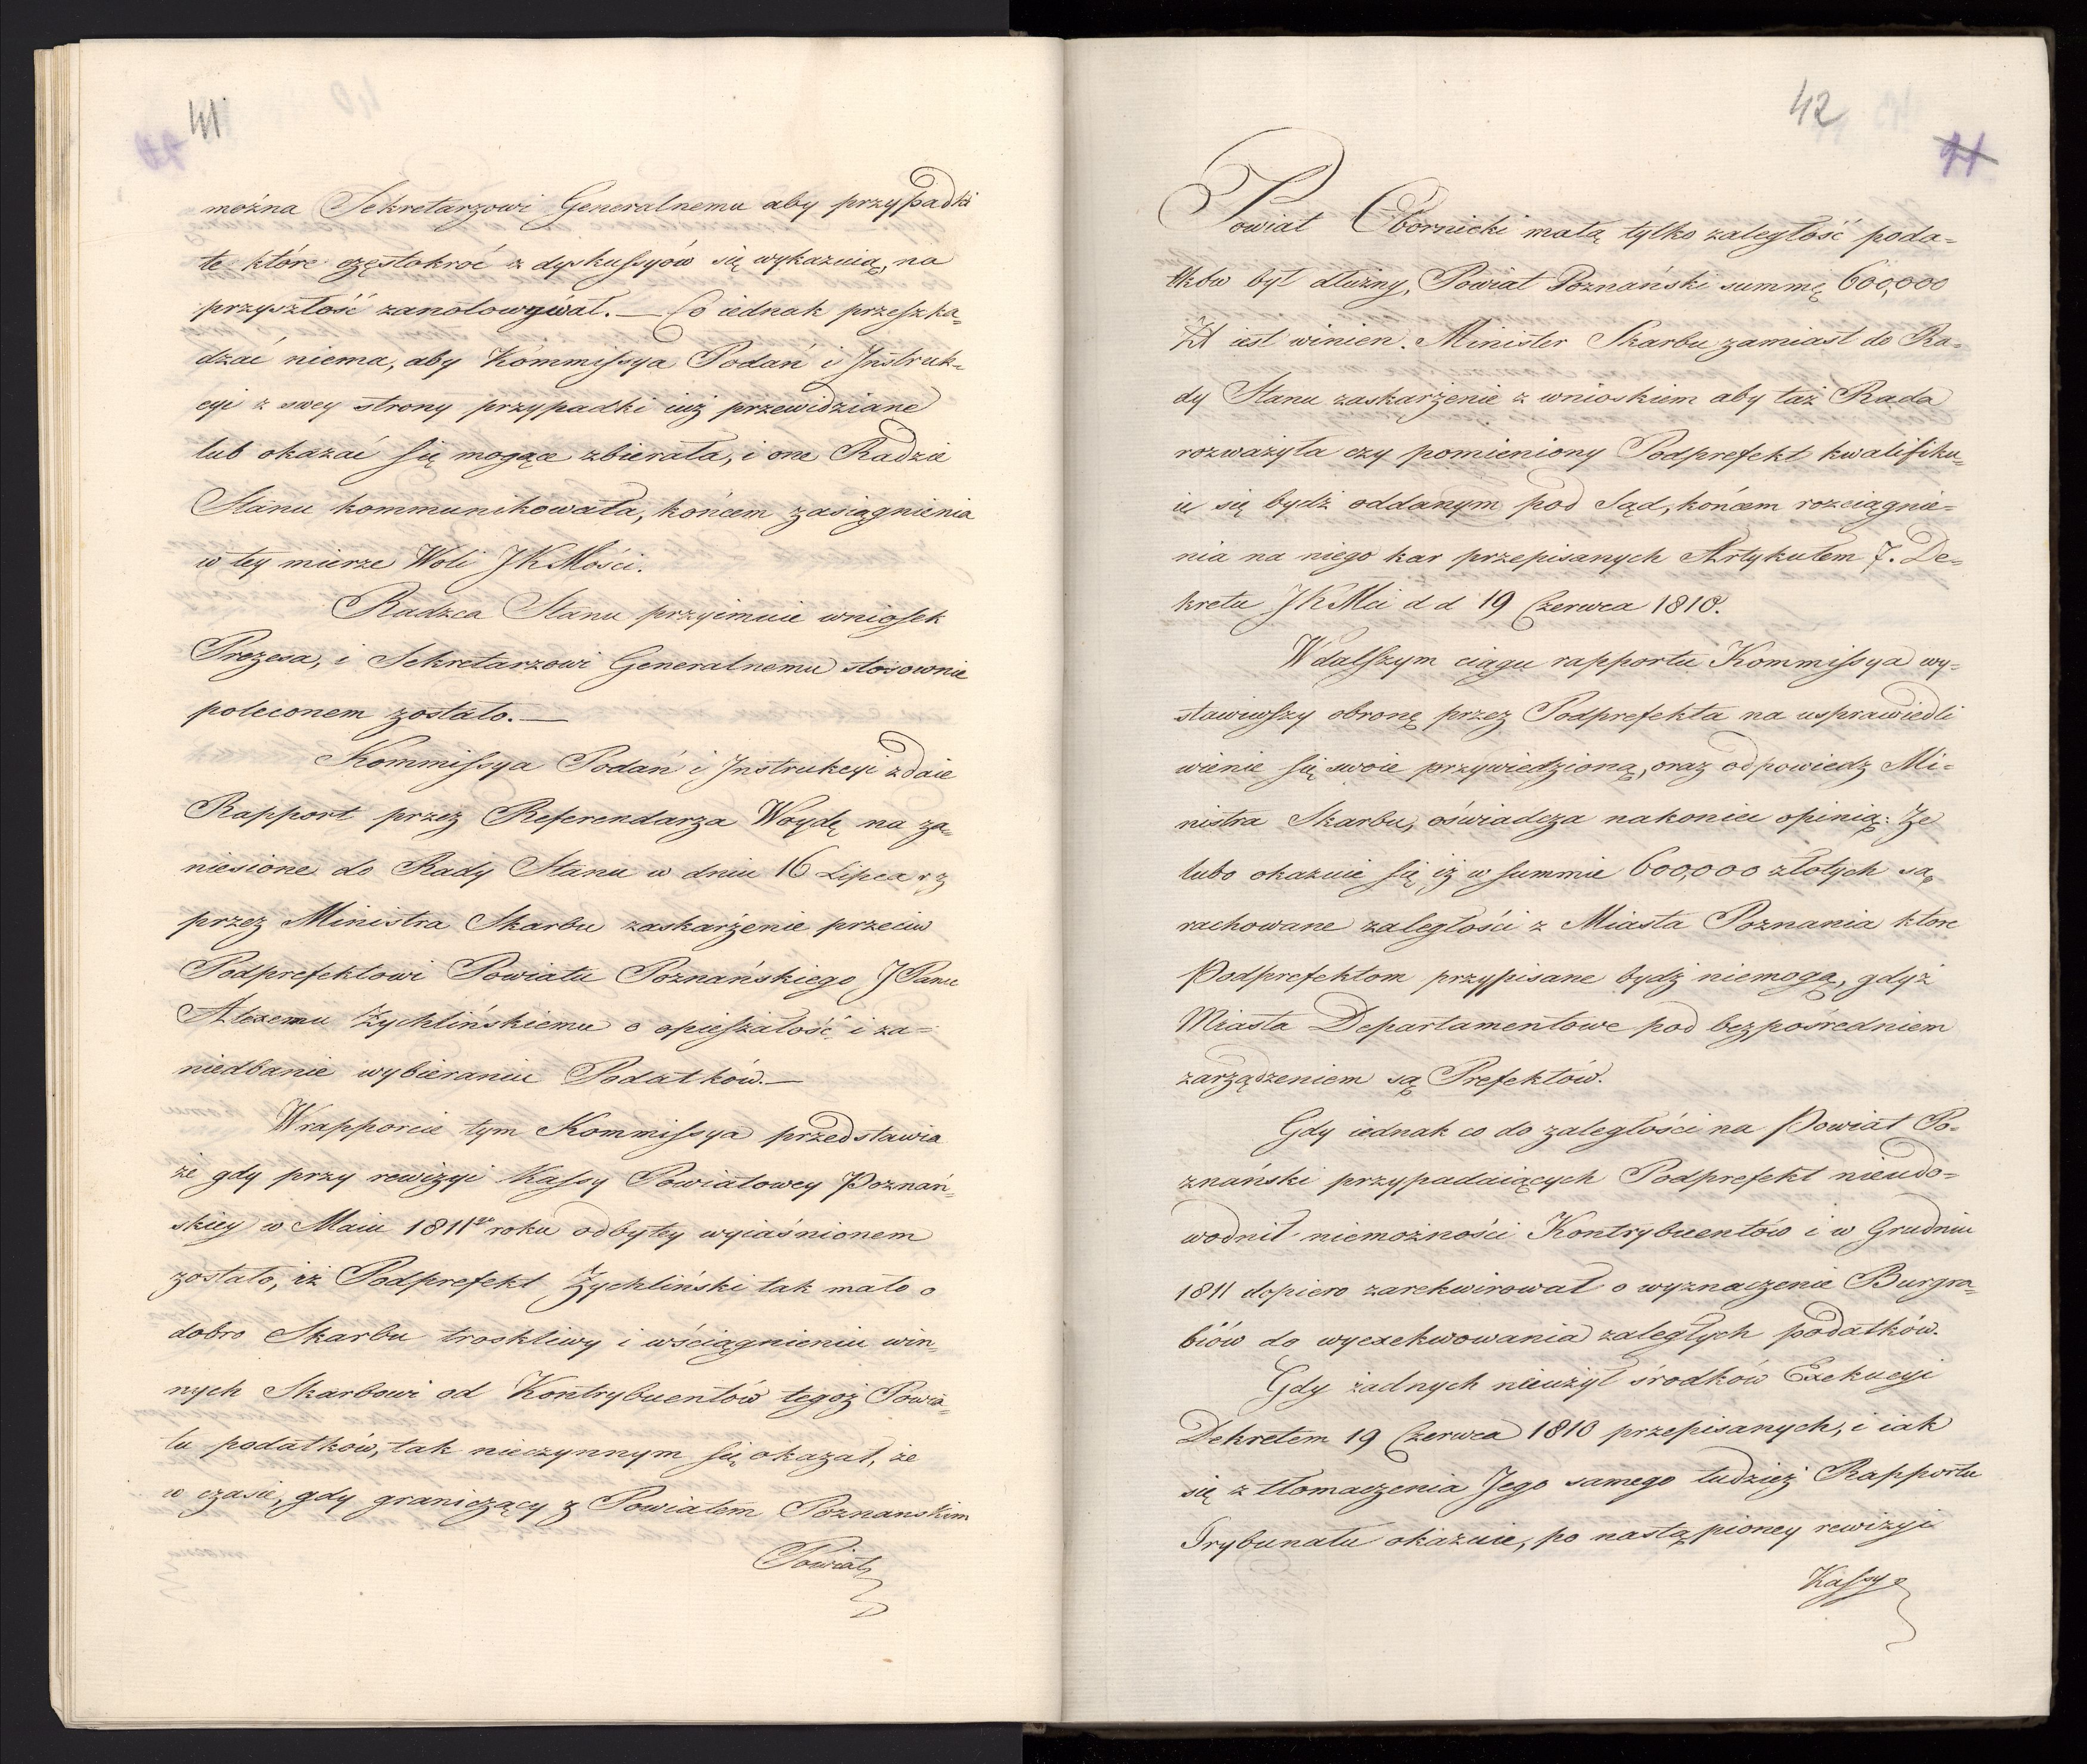 41
można Sekretarzowi Generalnemu aby przypadki
te które częstokroć z dyskussyów się wykazuią, na
przyszłość zanotowywał. — Co iednak przeszka=
dzać niema, aby Kommissya Podań i Instruk=
cyi z swey strony przypadki iuż przewidziane
lub okazać się mogące zbierała, i one Radzie
Stanu kommunikowała, końcem zasiągnienia
w tey mierze Woli JKMości.
Radzca Stanu przyimuie wniosek
Prezesa, i Sekretarzowi Generalnemu stosownie
poleconem zostało. —
Kommissya Podań i Instrukcyi zdaie
Rapport przez Referendarza Woydę na za=
niesione do Rady Stanu w dniu 16 Lipca r z
przez Ministra Skarbu zaskarżenie przeciw
Podprefektowi Powiatu Poznańskiego JPanu
Alexemu Zychlińskiemu o opieszałość i za=
niedbanie wybieraniu Podatków. —
W rapporcie tym Kommissya przedstawia
że gdy przy rewizyi Kassy Powiatowey Poznań=
skiey w Maiu 1811go roku odbytey wyiaśnionem
zostało, iż Podprefekt Zychliński tak mało o
dobro Skarbu troskliwy i wściągnieniu win=
nych Skarbowi od Kontrybuentów tegoż Powia=
tu podatków, tak nieczynnym się okazał, że
w czasie, gdy graniczący z Powiatem Poznanskim
Powiat
42
41
Powiat Obornicki małą tylko zaległość poda=
tków był dłużny, Powiat Poznański summę 600,000
Zł iest winien. Minister Skarbu zamiast do Ra=
dy Stanu zaskarżenie z wnioskiem aby taż Rada
rozważyła czy pomieniony Podprefekt kwalifiku=
ie się bydź oddanym pod Sąd, końcem rozciągnie=
nia na niego kar przepisanych Artykułem 7. De=
kretu JKMci d d 19 Czerwca 1810.
W dalszym ciągu rapportu Kommissya wy=
stawiwszy obronę przez Podprefekta na usprawiedli
wienie się swoie przywiedzioną, oraz odpowiedz Mi=
nistra Skarbu, oświadcza nakoniec opinią: Ze
lubo okazuie się iż w summie 600,000 złotych są
rachowane zaległości z Miasta Poznania ktore
Podprefektom przypisane bydz niemogą, gdyż
Miasta Departamentowe pod bezpośredniem
zarządzeniem są Prefektów.
Gdy iednak co do zaległości na Powiat Po=
znański przypadaiących Podprefekt nieudo=
wodnił niemożności Kontrybuentów i w Grudniu
1811 dopiero zarekwirował o wyznaczenie Burgra=
biów do wyexekwowania zaległych podatków.
Gdy żadnych nieużył środków Exekucyi
Dekretem 19 Czerwca 1810 przepisanych, i iak
się z tłomaczenia Jego samego tudzież Rapportu
Trybunału okazuie, po nastąpioney rewizyi
Kassy